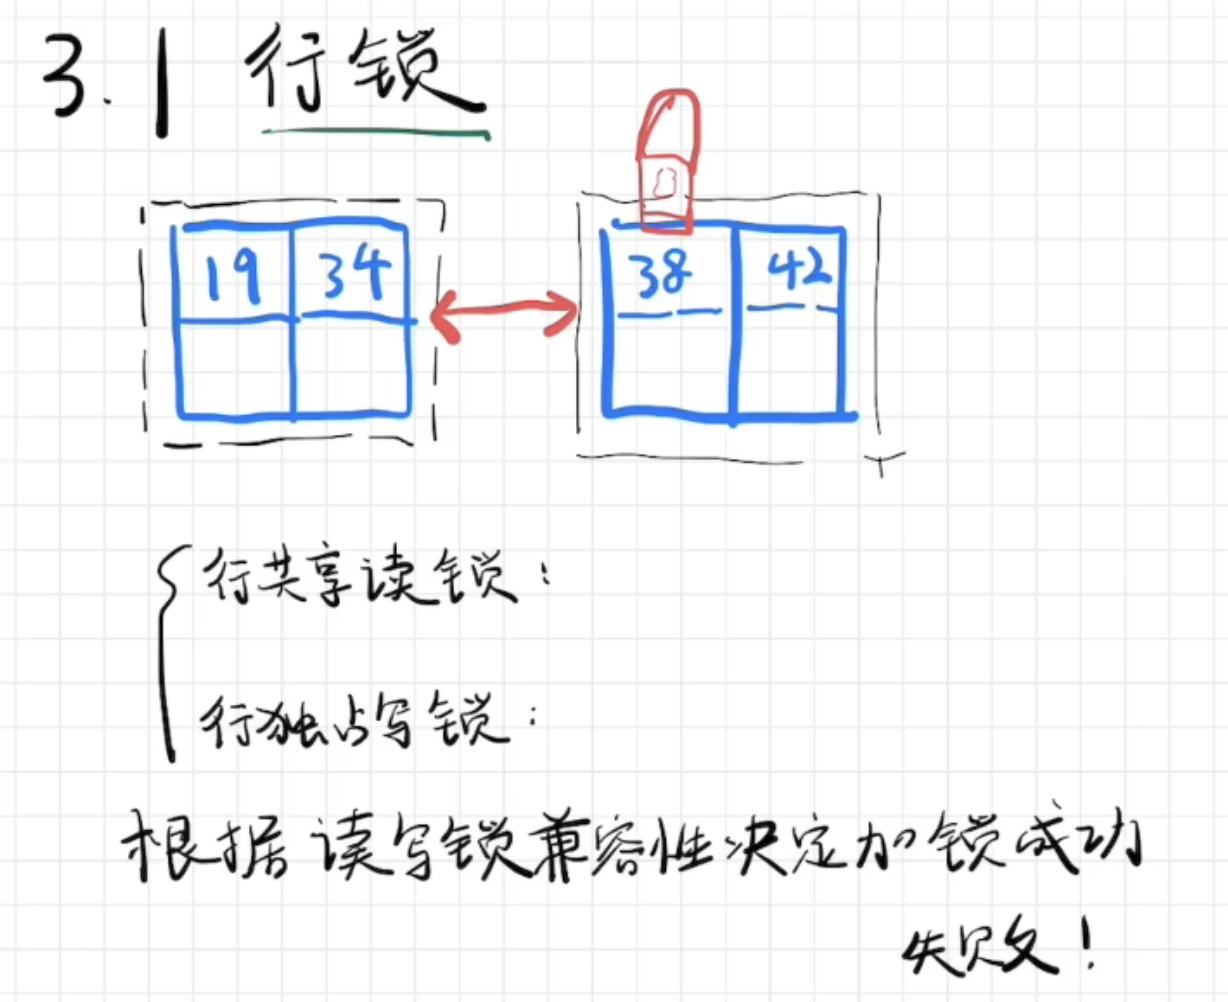 3.1 行锁
19 34 38 42
行共享读锁：
行独占写锁：
根据读写锁兼容性决定加锁成功
失败！